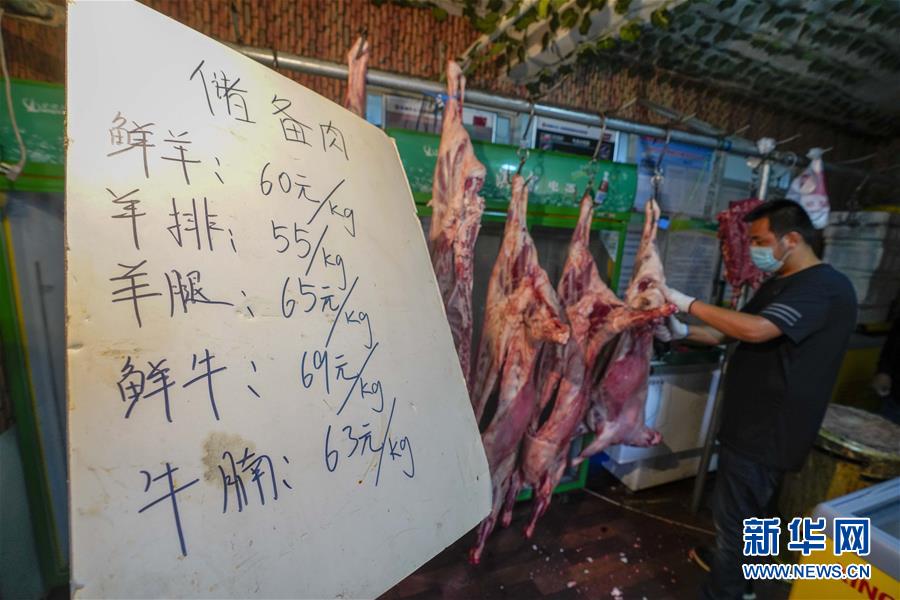 储备肉
鲜羊: 60元/kg
羊排: 55/kg
羊腿: 65元/kg
鲜牛: 69元/kg
牛腩: 63元/kg
新华网
WWW.NEWS.CN